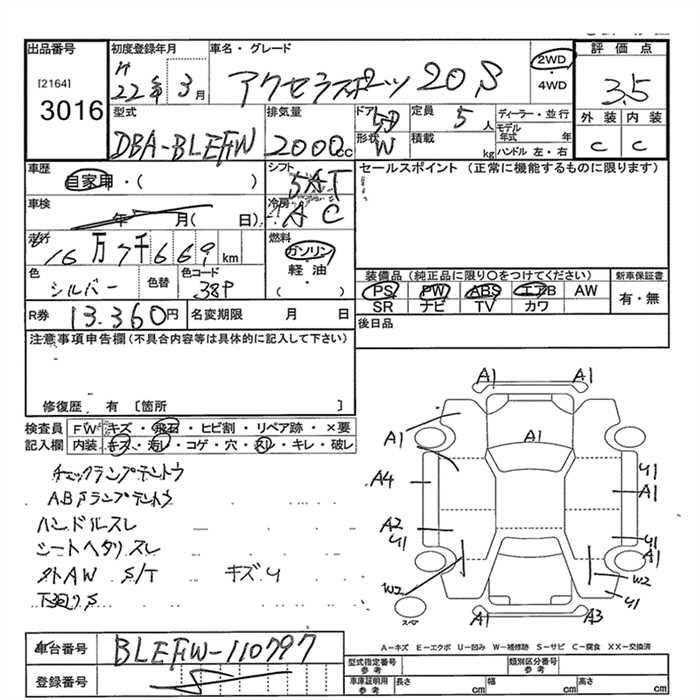 出品番号
[2164]
3016
初度登録年月
H
22年 3月
車名・グレード
アクセラスポーツ 20S
2WD
・
4WD
評価点
3.5
外装 内装
C C
型式
DBA-BLEFW
排気量
2000cc
ドア 5D
形状 W
定員 5人
積載 kg
ディーラー・並行
モデル年式 年
ハンドル 左・右
車歴
自家用・( )
シフト
5AT
セールスポイント (正常に機能するものに限ります)
車検
年 月( 日)
冷房
AC
走行
16万7千669km
燃料
ガソリン
・
軽油
( )
色
シルバー
色替
色コード
38P
装備品 (純正品に限り〇をつけてください)
PS PW ABS エアB AW
SR ナビ TV カワ
新車保証書
有・無
R券 13.360円
名変期限 月 日
後日品
注意事項申告欄 (不具合内容等は具体的に記入して下さい)
修復歴 有 [箇所 ]
検査員 FW キズ・飛石・ヒビ割・リペア跡・×要
記入欄 内装 キズ・汚レ・コゲ・穴・スレ・キレ・破レ
チェックランプテントウ
ABSランプテントウ
ハンドルスレ
シートヘタリスレ
外AW S/T キズU
下廻りS
A1 A1
A1 A1
A4 U1
A1
A2 U1 U1
A1
W2 W2
U1
スペア
A1 A3
A-キズ E-エクボ U-凹み W-補修跡 S-サビ C-腐食 XX-交換済
車台番号 BLEFW-110797
登録番号
型式指定番号
参考
類別区分番号
参考
車庫証明用
参考
長さ cm 幅 cm 高さ cm